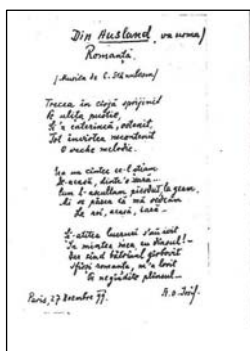 Din Ausland, va urma/
Romanță
(Muzica de C. Stănculescu)
Trecea în cîrjă sprijinit
Pe uliți pustie,
Și'n caterincă, ostenit,
Tot învîrtea necontenit
O veche melodie.
Era un cîntec ce-l știam
De-acasă, dintr'o seară...
Cum l-ascultam pierdut, la geam,
Mi se părea că mă vedeam
La noi, acasă, iară...
Și-atîtea lucruri s'au ivit
În mintea mea, cu dînsul!...
Dar cînd bătrînul gîrbovit
sfîrși romanța, m'a lovit
Pe negîndite plînsul...
Paris, 27 99. St. O. Iosif.